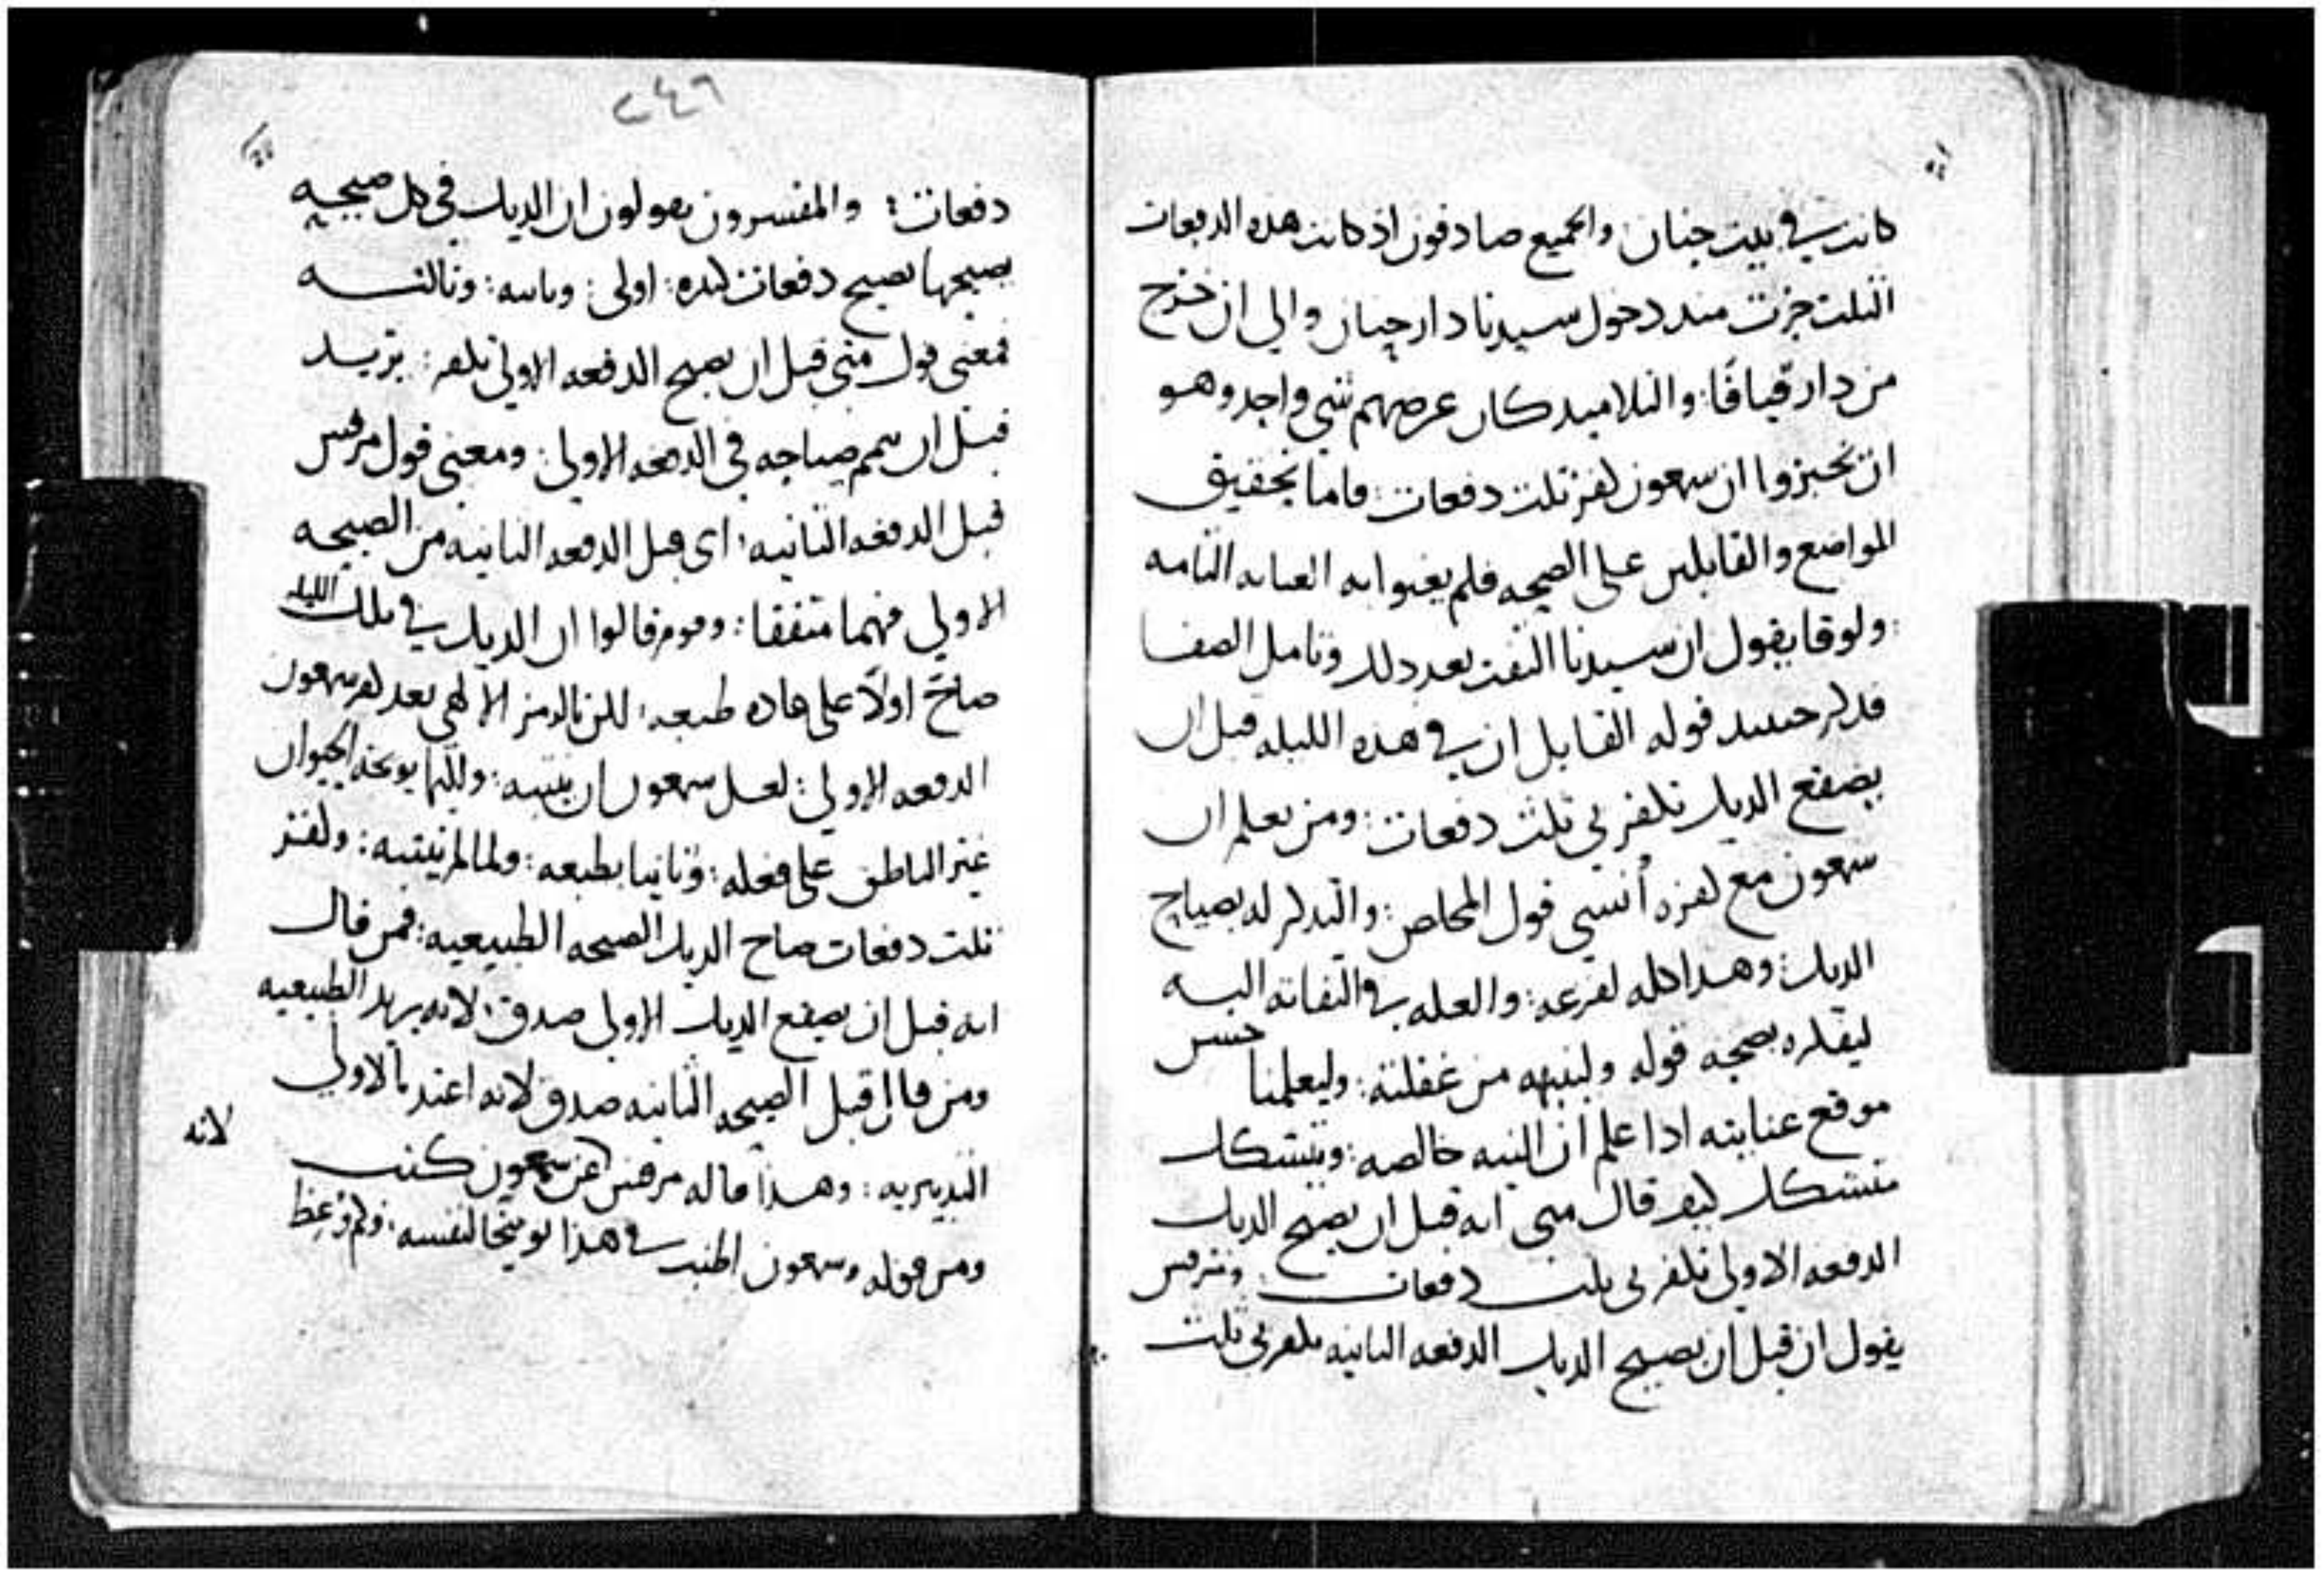 كانت في بيت حنان والجميع صادقون اذ كانت هذه الدفعات
الثلت جرت منذ دخول سيدنا دار حنان والي ان خرج
من دار قيافا: والتلاميد كان غرضهم شي واحد وهو
ان يخبروا ان سمعون كفر تلت دفعات: فاما تحقيق
المواضع والقابلين على الصحه فلم يعنوا به العنايه التامه
: ولوقا يقول ان سيدنا التفت بعد ذلك وتامل الصفا
فدكر حينيد قوله القايل ان في هذه الليله قبل ان
يصقع الديك تكفر بي تلت دفعات: ومن يعلم ان
سمعون مع كفره أنسي قول المخلص: والتدكر له بصياح
الديك: وهدا كله لفزعه: والعله في التفاته اليه
ليفكره بصحه قوله ولينبهه من غفلته: وليعلمنا حسن
موقع عنايته ادا علم ان النيه خالصه: ويتشكك
متشكك كيف قال متى انه قبل ان يصيح الديك
الدفعه الاولى تكفر بي تلت دفعات: ومرقس
يقول ان قبل ان يصيح الديك الدفعه التانيه تكفر بي تلت
٢٤٦
دفعات: والمفسرون يقولون ان الديك في كل صيحه
يصيحها يصيح دفعات كتيره: اولى: وتانيه: وتالته
فمعنى قول متى قبل ان يصيح الدفعه الاولى تكفر: يريد
قبل ان يتمم صياحه في الدفعه الاولى: ومعنى قول مرقس
قبل الدفعه التانيه: اي قبل الدفعه التانيه من الصيحه
الاولي فهما متفقا: وقوم قالوا ان الديك في تلك الليله
صاح اولاً على عاده طبعه: لكن بالرمز الالاهي بعد كفر سمعون
الدفعه الاولي: لعل سمعون ان ينتبه: وكانما يوبخه الحيوان
غير الناطق على فعله: وتانيا بطبعه: ولما لم ينتبه: وكفر
تلت دفعات صاح الديك الصيحه الطبيعيه: فمن قال
انه قبل ان يصقع الديك الاولى صدق: لانه يريد الطبيعيه
ومن قال قبل الصيحه التانيه صدق لانه اعتد بالاولي
التدبيريه: وهدا قاله مرقس عن سمعون كتب
ومن قوله وسمعون اطنب في هذا توبيخا لنفسه:
لانه